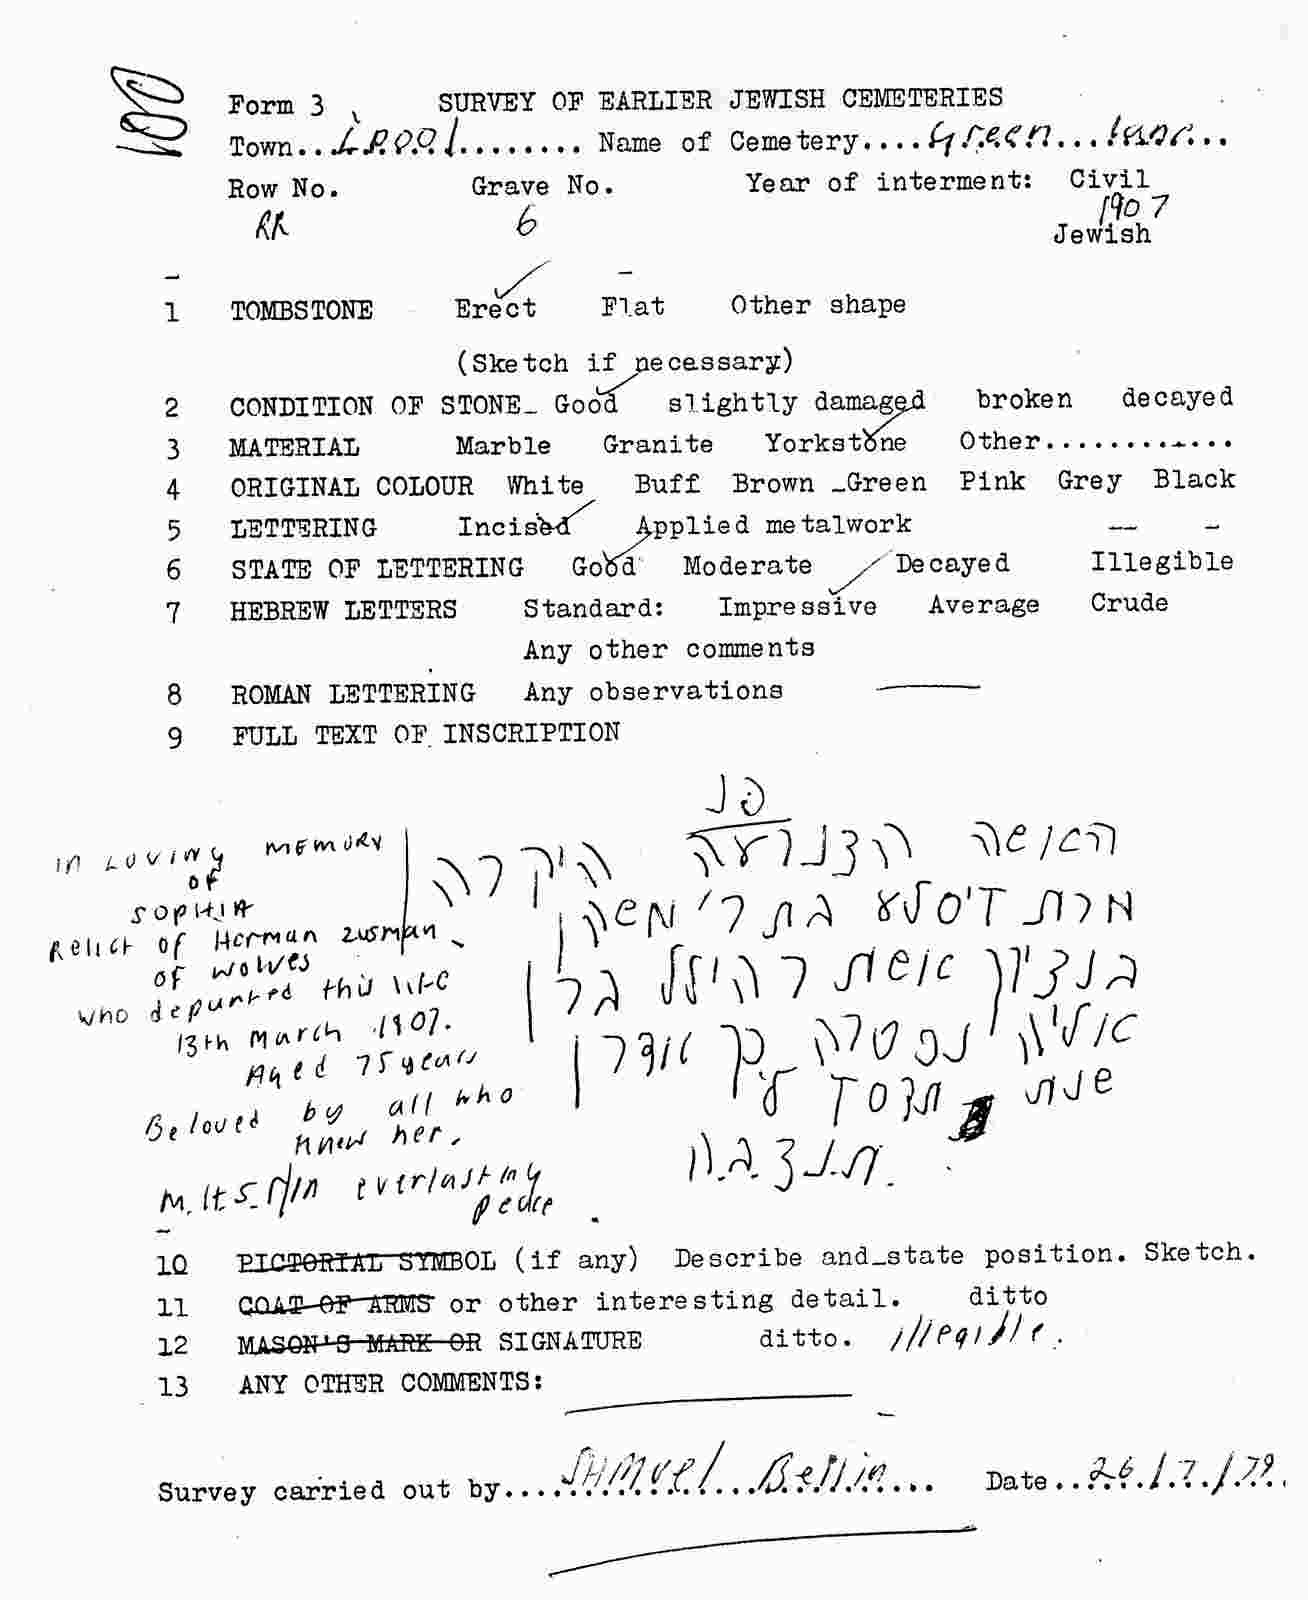 Form 3 SURVEY OF EARLIER JEWISH CEMETERIES
Town...LPOOL........ Name of Cemetery....Green...Lane...
Row No. Grave No. Year of interment: Civil
RR 6 1907
Jewish
1 TOMBSTONE Erect Flat Other shape
(Sketch if necessary)
2 CONDITION OF STONE Good slightly damaged broken decayed
3 MATERIAL Marble Granite Yorkstone Other............
4 ORIGINAL COLOUR White Buff Brown Green Pink Grey Black
5 LETTERING Incised Applied metalwork
6 STATE OF LETTERING Good Moderate Decayed Illegible
7 HEBREW LETTERS Standard: Impressive Average Crude
Any other comments
8 ROMAN LETTERING Any observations
9 FULL TEXT OF INSCRIPTION
פנ
האשה הצנועה היקרה
מרת בת ר' משה
בנציון אשת ר הילל בר
אליה נפטרה כך אדר
שנת תרסז
ת.נ.צ.ב.ה
IN LOVING MEMORY
OF
SOPHIA
Relict of Herman Zusman
of Wolves
who departed this life
13th March 1907.
Aged 75 years
Beloved by all who
knew her.
M.H.S.R/in everlasting
peace
10 PICTORIAL SYMBOL (if any) Describe and state position. Sketch.
11 COAT OF ARMS or other interesting detail. ditto
12 MASON'S MARK OR SIGNATURE ditto. illegible.
13 ANY OTHER COMMENTS:
Survey carried out by....Shmuel...Bellin... Date..26./.7./.79..